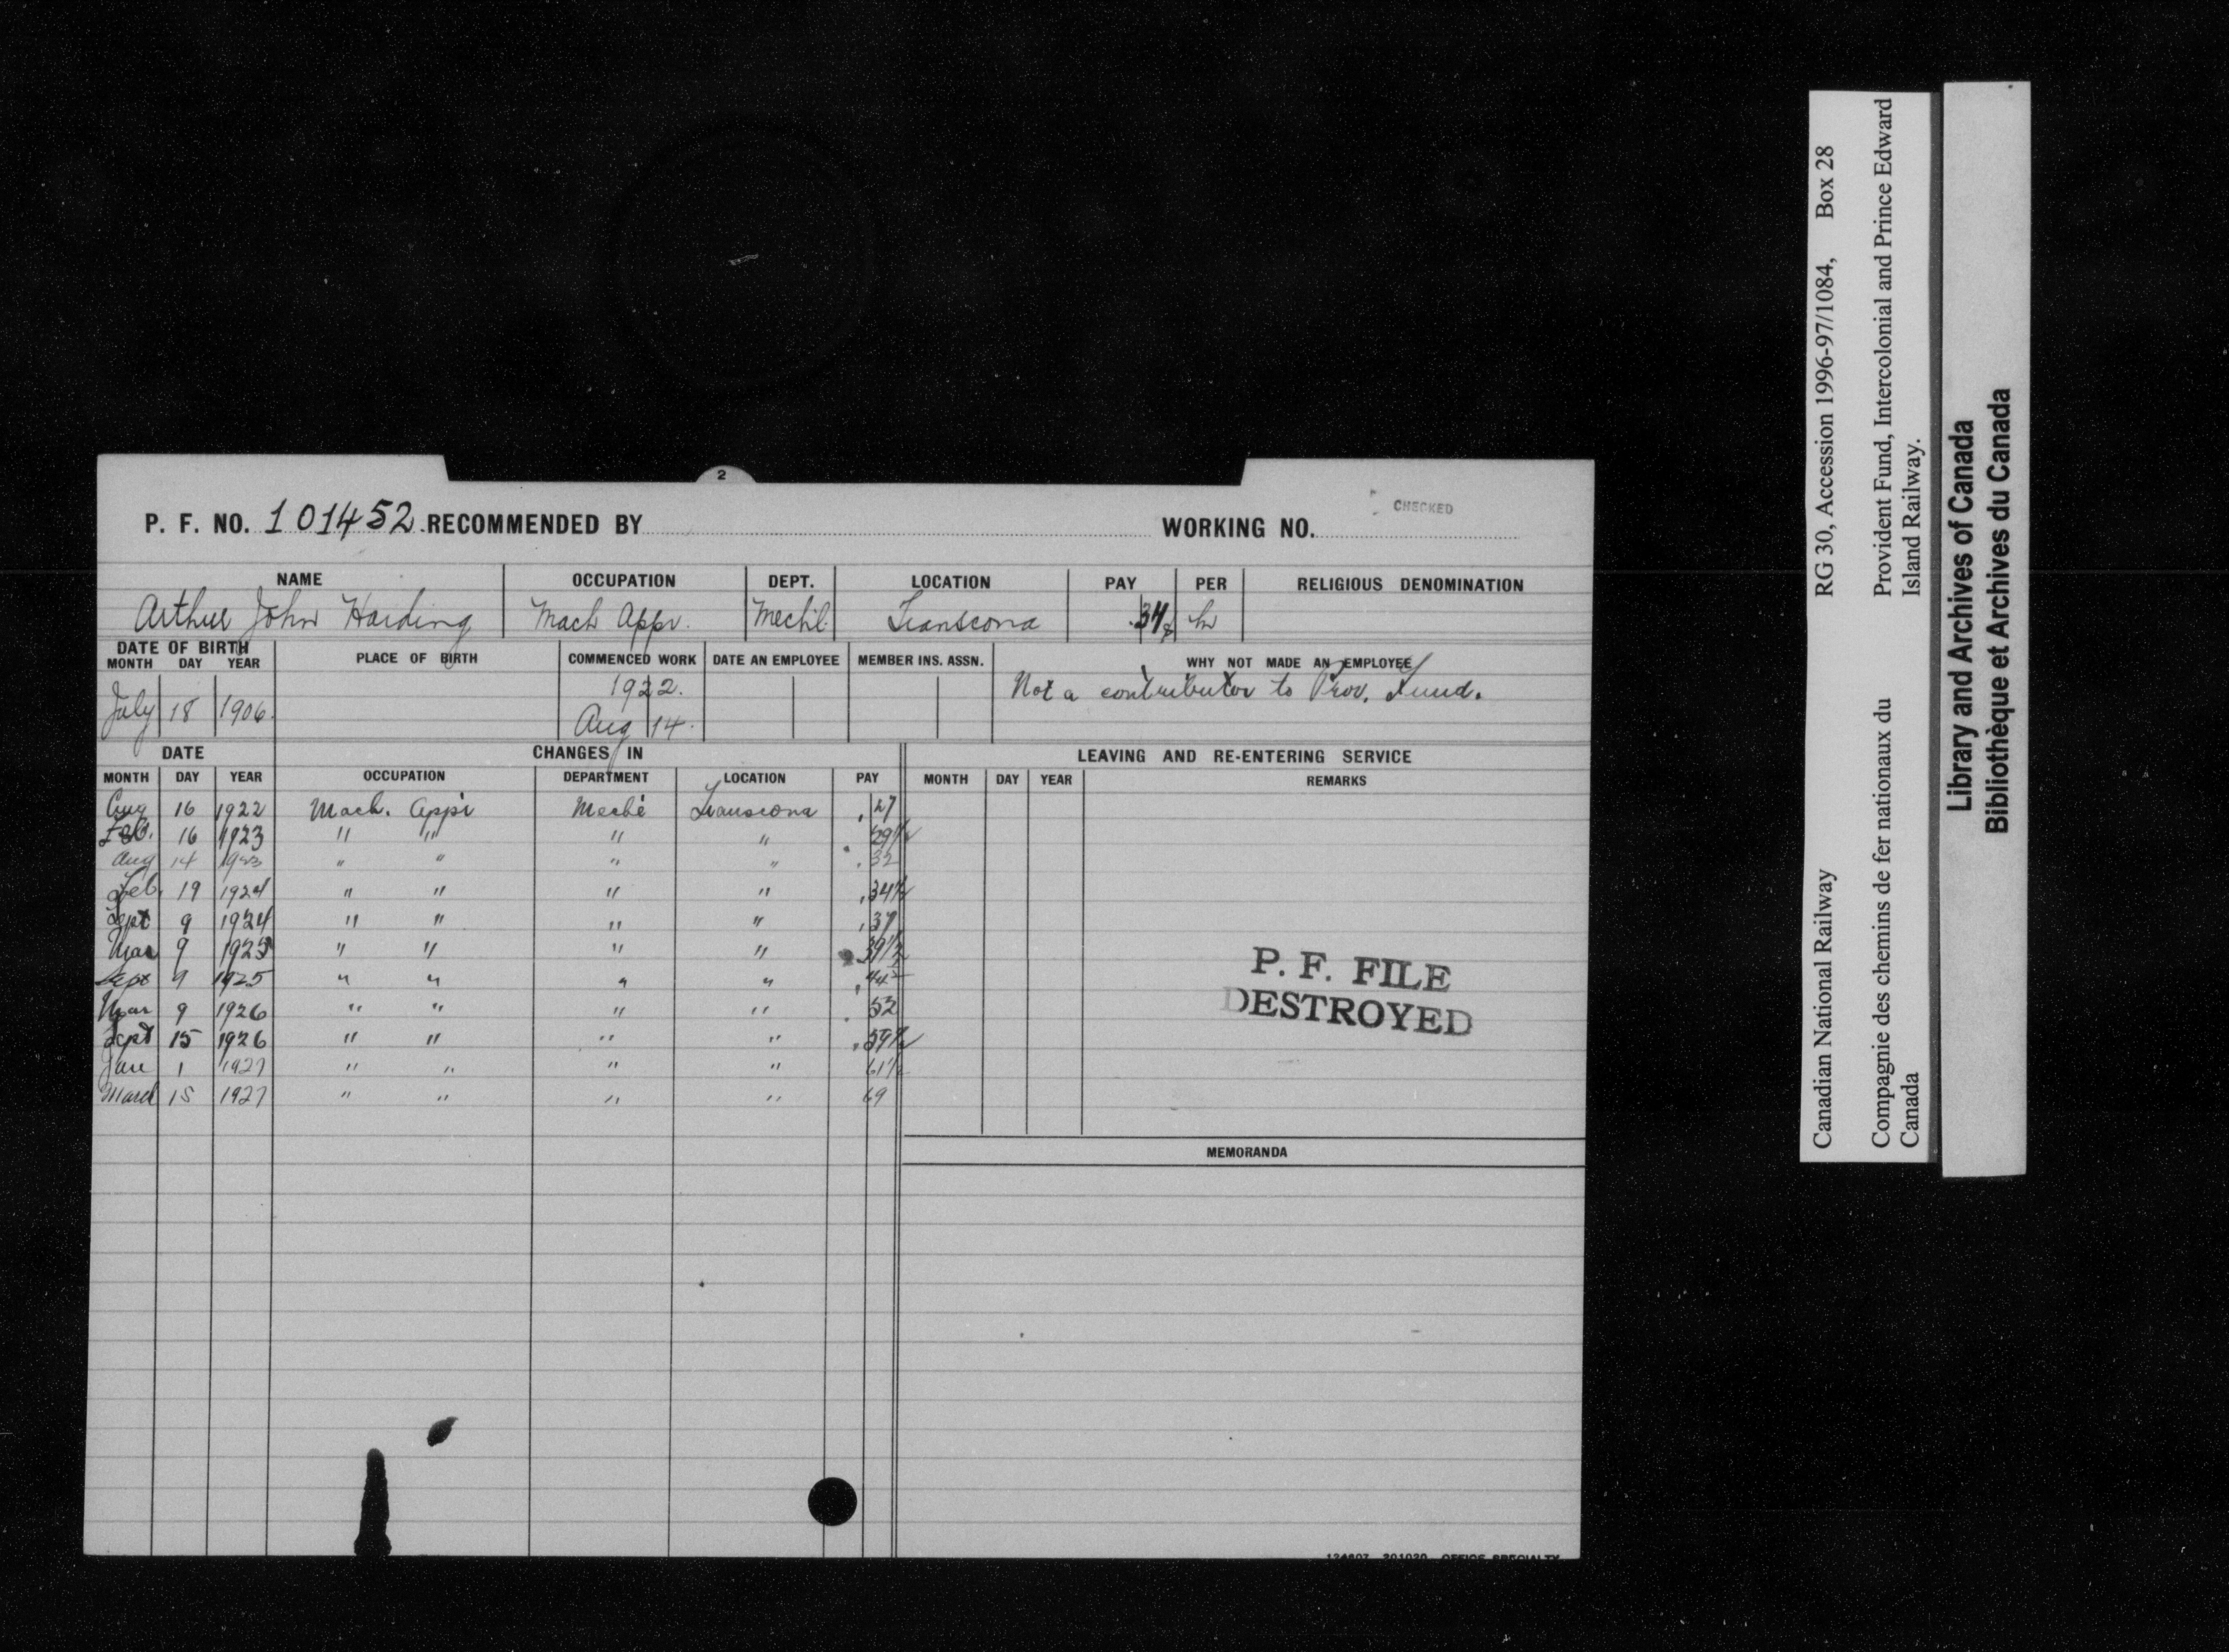 2
CHECKED
P. F. NO. 101452 RECOMMENDED BY WORKING NO.
NAME OCCUPATION DEPT. LOCATION PAY PER RELIGIOUS DENOMINATION
Arthur John Harding Mach Appr. Mech'l Transcona .34½ hr
DATE OF BIRTH
MONTH DAY YEAR PLACE OF BIRTH COMMENCED WORK DATE AN EMPLOYEE MEMBER INS. ASSN. WHY NOT MADE AN EMPLOYEE
July 18 1906 1922. Not a contributor to Prov. Fund.
Aug 14
DATE CHANGES IN LEAVING AND RE-ENTERING SERVICE
MONTH DAY YEAR OCCUPATION DEPARTMENT LOCATION PAY MONTH DAY YEAR REMARKS
Aug 16 1922 Mach. Appr Mech'l Transcona .27
Feb. 16 1923 " " " " .29½
Aug 14 1923 " " " " .32
Feb. 19 1924 " " " " .34½
Sept 9 1924 " " " " .37
Mar 9 1925 " " " " .39½
Sept 9 1925 " " " "
Mar 9 1926 " " " " .52
Sept 15 1926 " " " " .59½
Jan 1 1927 " " " " 61½
March 15 1927 " " " " 69
P. F. FILE
DESTROYED
MEMORANDA
OFFICE SPECIALTY
Canadian National Railway RG 30, Accession 1996-97/1084, Box 28
Compagnie des chemins de fer nationaux du Provident Fund, Intercolonial and Prince Edward
Canada Island Railway.
Library and Archives of Canada
Bibliothèque et Archives du Canada